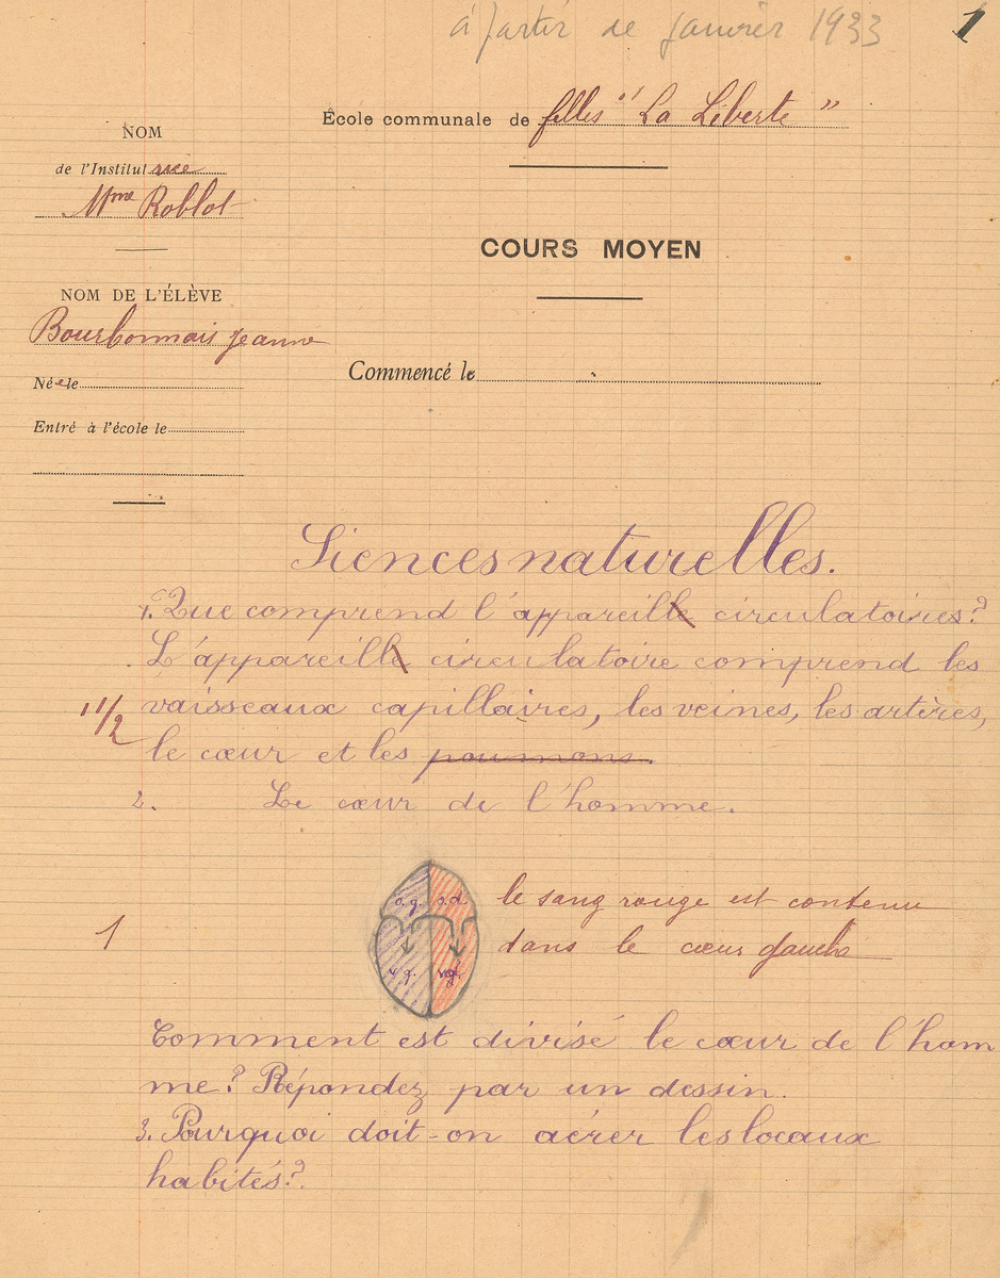 à partir de janvier 1933
1
École communale de filles "La Liberté"
NOM
de l'Institutrice
Mme Roblot
COURS MOYEN
NOM DE L'ÉLÈVE
Bourbonnais Jeanne
Née le
Commencé le
Entré à l'école le
Siences naturelles.
1. Que comprend l'appareille circulatoires?
L'appareille circulatoire comprend les
1 1/2
vaisseaux capillaires, les veines, les artères,
le cœur et les poumons.
2. Le cœur de l'homme.
o.g. o.d.
le sang rouge est contenu
1
dans le cœur gauche
v.g.
Comment est divisé le cœur de l'hom
me? Répondez par un dessin.
3. Pourquoi doit-on aérer les locaux
habités?